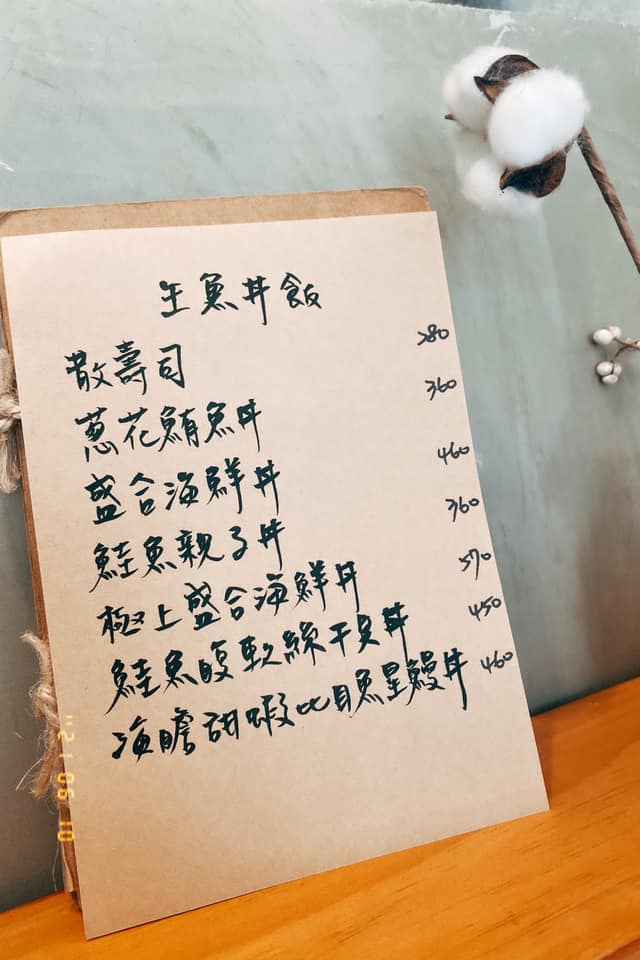 生魚丼飯
散壽司 280
蔥花鮪魚丼 360
盛合海鮮丼 460
鮭魚親子丼 360
極上盛合海鮮丼 570
鮭魚腹軟絲干貝丼 450
海膽甜蝦比目魚星鰻丼 460
'21 06 10